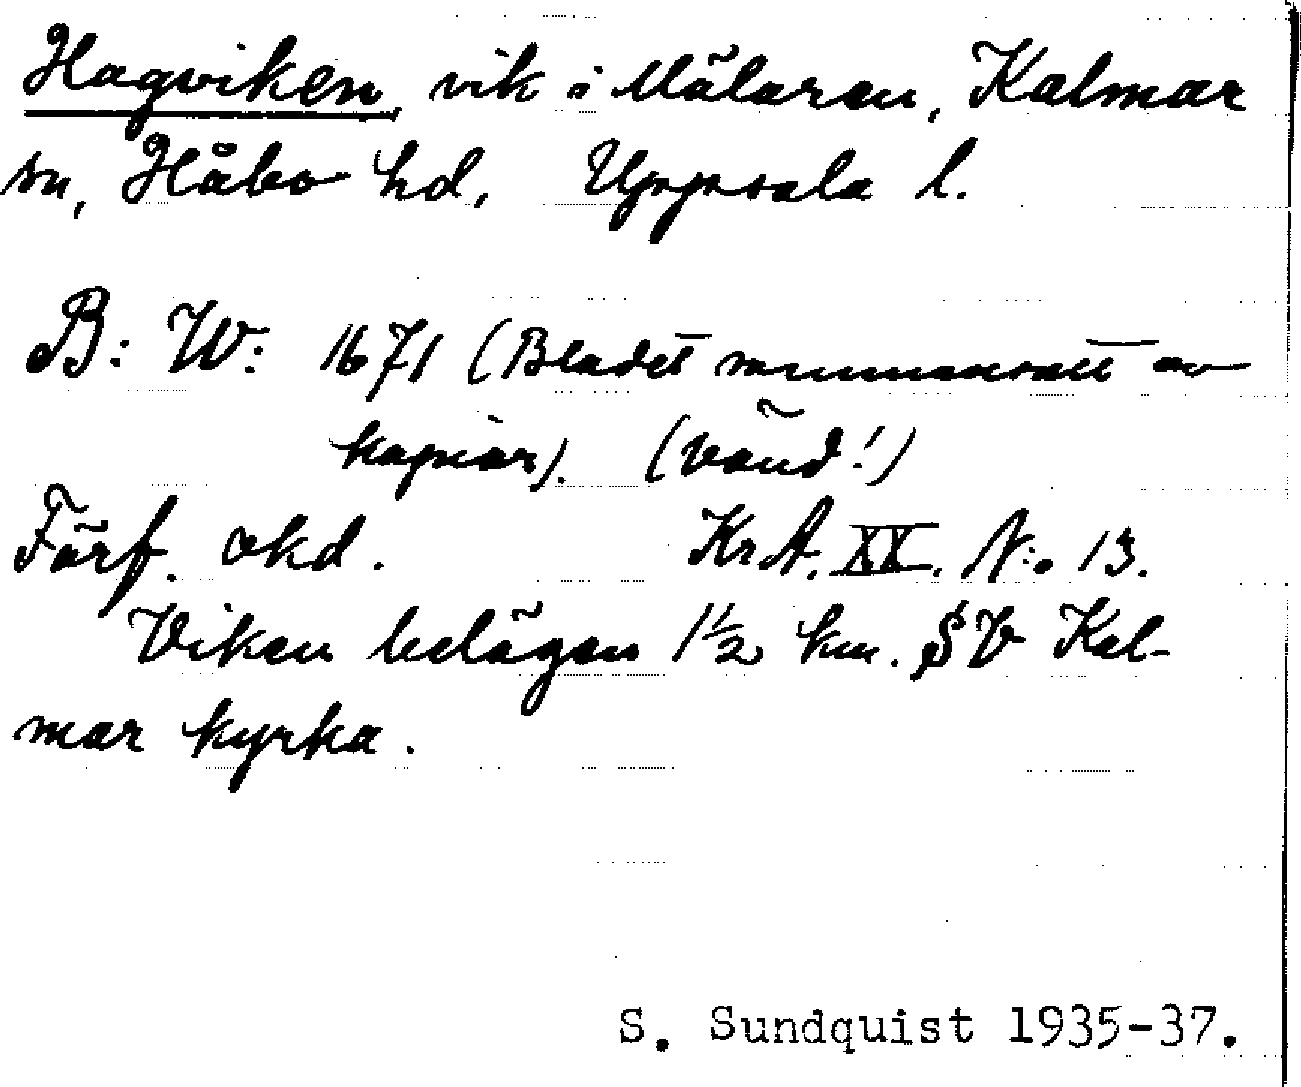 Hagviken, vik i Mälaren, Kalmar
sn, Håbo hd, Uppsala l.
B: W: 1671 (Bladet sammansatt av
kopior). (Vänd!)
Förf. okd. KrA. XX. N:o 13.
Viken belägen 1½ km. SV Kal-
mar kyrka.
S. Sundquist 1935-37.